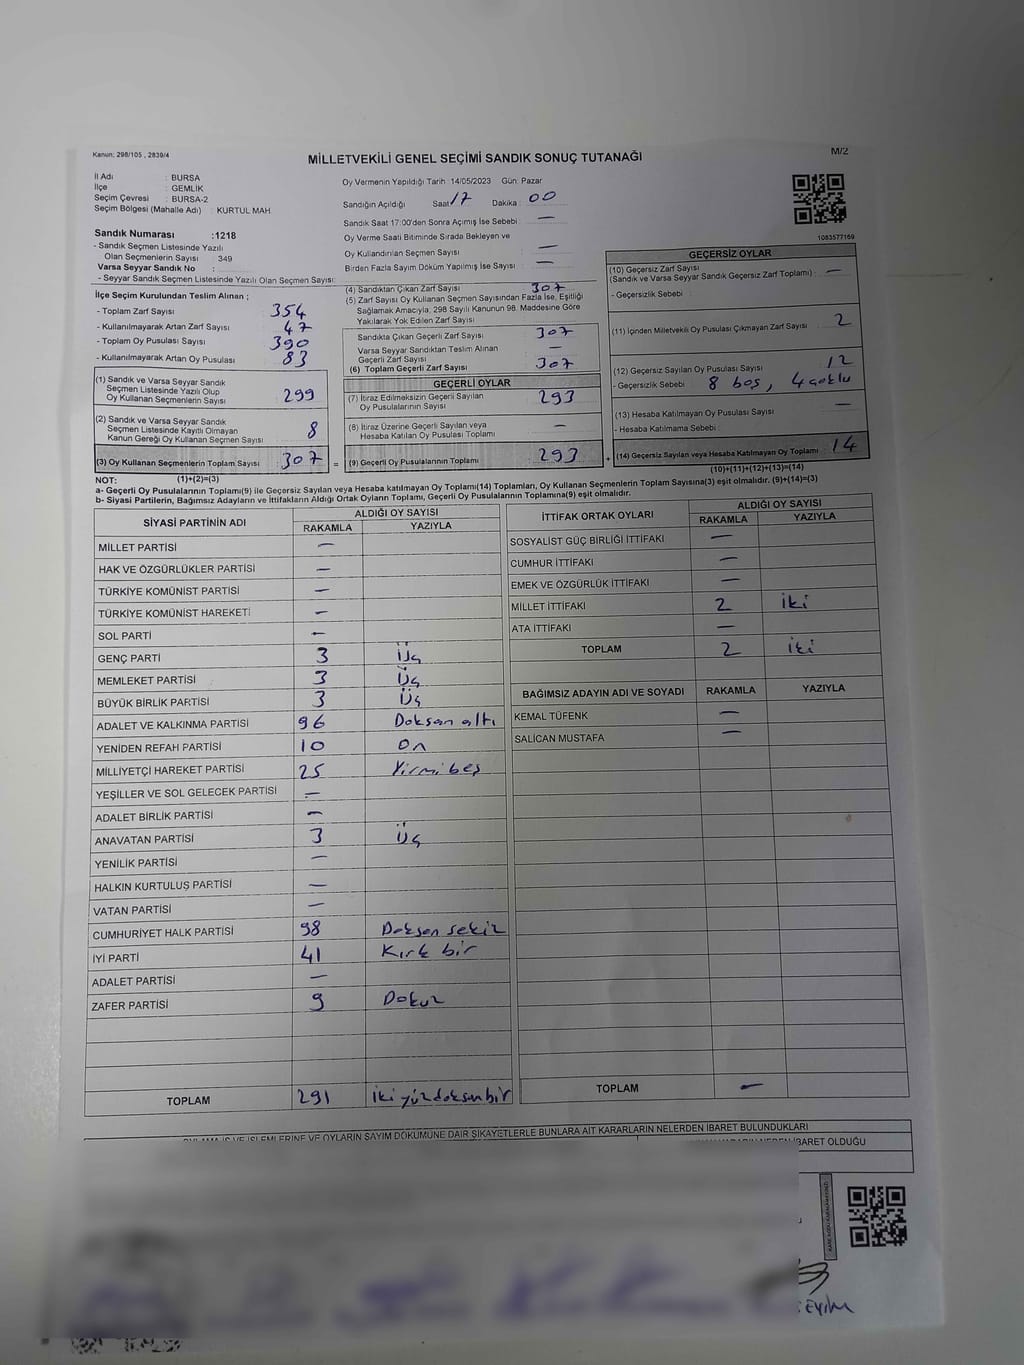 Kanun: 298/105 , 2839/4
MİLLETVEKİLİ GENEL SEÇİMİ SANDIK SONUÇ TUTANAĞI
M/2
İl Adı : BURSA
İlçe : GEMLİK
Seçim Çevresi : BURSA-2
Seçim Bölgesi (Mahalle Adı) : KURTUL MAH
Sandık Numarası :1218
- Sandık Seçmen Listesinde Yazılı
Olan Seçmenlerin Sayısı : 349
Varsa Seyyar Sandık No :
- Seyyar Sandık Seçmen Listesinde Yazılı Olan Seçmen Sayısı:
Oy Vermenin Yapıldığı Tarih 14/05/2023 Gün: Pazar
Sandığın Açıldığı Saat 17 Dakika : 00
Sandık Saat 17:00'den Sonra Açılmış İse Sebebi : —
Oy Verme Saati Bitiminde Sırada Bekleyen ve
Oy Kullandırılan Seçmen Sayısı : —
Birden Fazla Sayım Döküm Yapılmış İse Sayısı : —
1083577169
İlçe Seçim Kurulundan Teslim Alınan ;
- Toplam Zarf Sayısı : 354
- Kullanılmayarak Artan Zarf Sayısı : 47
- Toplam Oy Pusulası Sayısı : 390
- Kullanılmayarak Artan Oy Pusulası : 83
(1) Sandık ve Varsa Seyyar Sandık
Seçmen Listesinde Yazılı Olup
Oy Kullanan Seçmenlerin Sayısı 299
(2) Sandık ve Varsa Seyyar Sandık
Seçmen Listesinde Kayıtlı Olmayan
Kanun Gereği Oy Kullanan Seçmen Sayısı 8
(3) Oy Kullanan Seçmenlerin Toplam Sayısı 307 =
(4) Sandıktan Çıkan Zarf Sayısı 307
(5) Zarf Sayısı Oy Kullanan Seçmen Sayısından Fazla İse, Eşitliği
Sağlamak Amacıyla, 298 Sayılı Kanunun 98. Maddesine Göre
Yakılarak Yok Edilen Zarf Sayısı :
Sandıkta Çıkan Geçerli Zarf Sayısı 307
Varsa Seyyar Sandıktan Teslim Alınan
Geçerli Zarf Sayısı —
(6) Toplam Geçerli Zarf Sayısı 307
GEÇERLİ OYLAR
(7) İtiraz Edilmeksizin Geçerli Sayılan
Oy Pusulalarının Sayısı 293
(8) İtiraz Üzerine Geçerli Sayılan veya
Hesaba Katılan Oy Pusulası Toplamı —
(9) Geçerli Oy Pusulalarının Toplamı 293 +
GEÇERSİZ OYLAR
(10) Geçersiz Zarf Sayısı
(Sandık ve Varsa Seyyar Sandık Geçersiz Zarf Toplamı) : —
- Geçersizlik Sebebi :
(11) İçinden Milletvekili Oy Pusulası Çıkmayan Zarf Sayısı 2
(12) Geçersiz Sayılan Oy Pusulası Sayısı 12
- Geçersizlik Sebebi : 8 boş, 4 çoklu
(13) Hesaba Katılmayan Oy Pusulası Sayısı —
- Hesaba Katılmama Sebebi :
(14) Geçersiz Sayılan veya Hesaba Katılmayan Oy Toplamı 14
(1)+(2)=(3)
(10)+(11)+(12)+(13)=(14)
NOT:
a- Geçerli Oy Pusulalarının Toplamı(9) ile Geçersiz Sayılan veya Hesaba katılmayan Oy Toplamı(14) Toplamları, Oy Kullanan Seçmenlerin Toplam Sayısına(3) eşit olmalıdır. (9)+(14)=(3)
b- Siyasi Partilerin, Bağımsız Adayların ve İttifakların Aldığı Ortak Oyların Toplamı, Geçerli Oy Pusulalarının Toplamına(9) eşit olmalıdır.
SİYASİ PARTİNİN ADI ALDIĞI OY SAYISI
RAKAMLA YAZIYLA
MİLLET PARTİSİ —
HAK VE ÖZGÜRLÜKLER PARTİSİ —
TÜRKİYE KOMÜNİST PARTİSİ —
TÜRKİYE KOMÜNİST HAREKETİ —
SOL PARTİ —
GENÇ PARTİ 3 Üç
MEMLEKET PARTİSİ 3 Üç
BÜYÜK BİRLİK PARTİSİ 3 Üç
ADALET VE KALKINMA PARTİSİ 96 Doksan altı
YENİDEN REFAH PARTİSİ 10 On
MİLLİYETÇİ HAREKET PARTİSİ 25 Yirmi beş
YEŞİLLER VE SOL GELECEK PARTİSİ —
ADALET BİRLİK PARTİSİ —
ANAVATAN PARTİSİ 3 Üç
YENİLİK PARTİSİ —
HALKIN KURTULUŞ PARTİSİ —
VATAN PARTİSİ —
CUMHURİYET HALK PARTİSİ 98 Doksan sekiz
İYİ PARTİ 41 Kırk bir
ADALET PARTİSİ —
ZAFER PARTİSİ 9 Dokuz
TOPLAM 291 İki yüz doksan bir
İTTİFAK ORTAK OYLARI ALDIĞI OY SAYISI
RAKAMLA YAZIYLA
SOSYALİST GÜÇ BİRLİĞİ İTTİFAKI —
CUMHUR İTTİFAKI —
EMEK VE ÖZGÜRLÜK İTTİFAKI —
MİLLET İTTİFAKI 2 İki
ATA İTTİFAKI —
TOPLAM 2 İki
BAĞIMSIZ ADAYIN ADI VE SOYADI RAKAMLA YAZIYLA
KEMAL TÜFENK —
SALİCAN MUSTAFA —
TOPLAM —
İŞ VE İŞLEMLERİNE VE OYLARIN SAYIM DÖKÜMÜNE DAİR ŞİKAYETLERLE BUNLARA AİT KARARLARIN NELERDEN İBARET BULUNDUKLARI
İBARET OLDUĞU